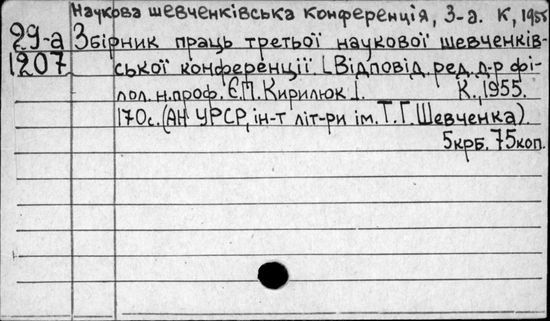 Наукова шевченківська конференція, 3-а. К, 1955
29-а Збірник праць третьої наукової шевченків-
1207 ської конференції. [Відповід. ред. д-р фі-
лол. н. проф. Є.П. Кирилюк]. К., 1955.
170с. (АН УРСР, ін-т літ-ри ім. Т.Г. Шевченка).
5крб. 75коп.